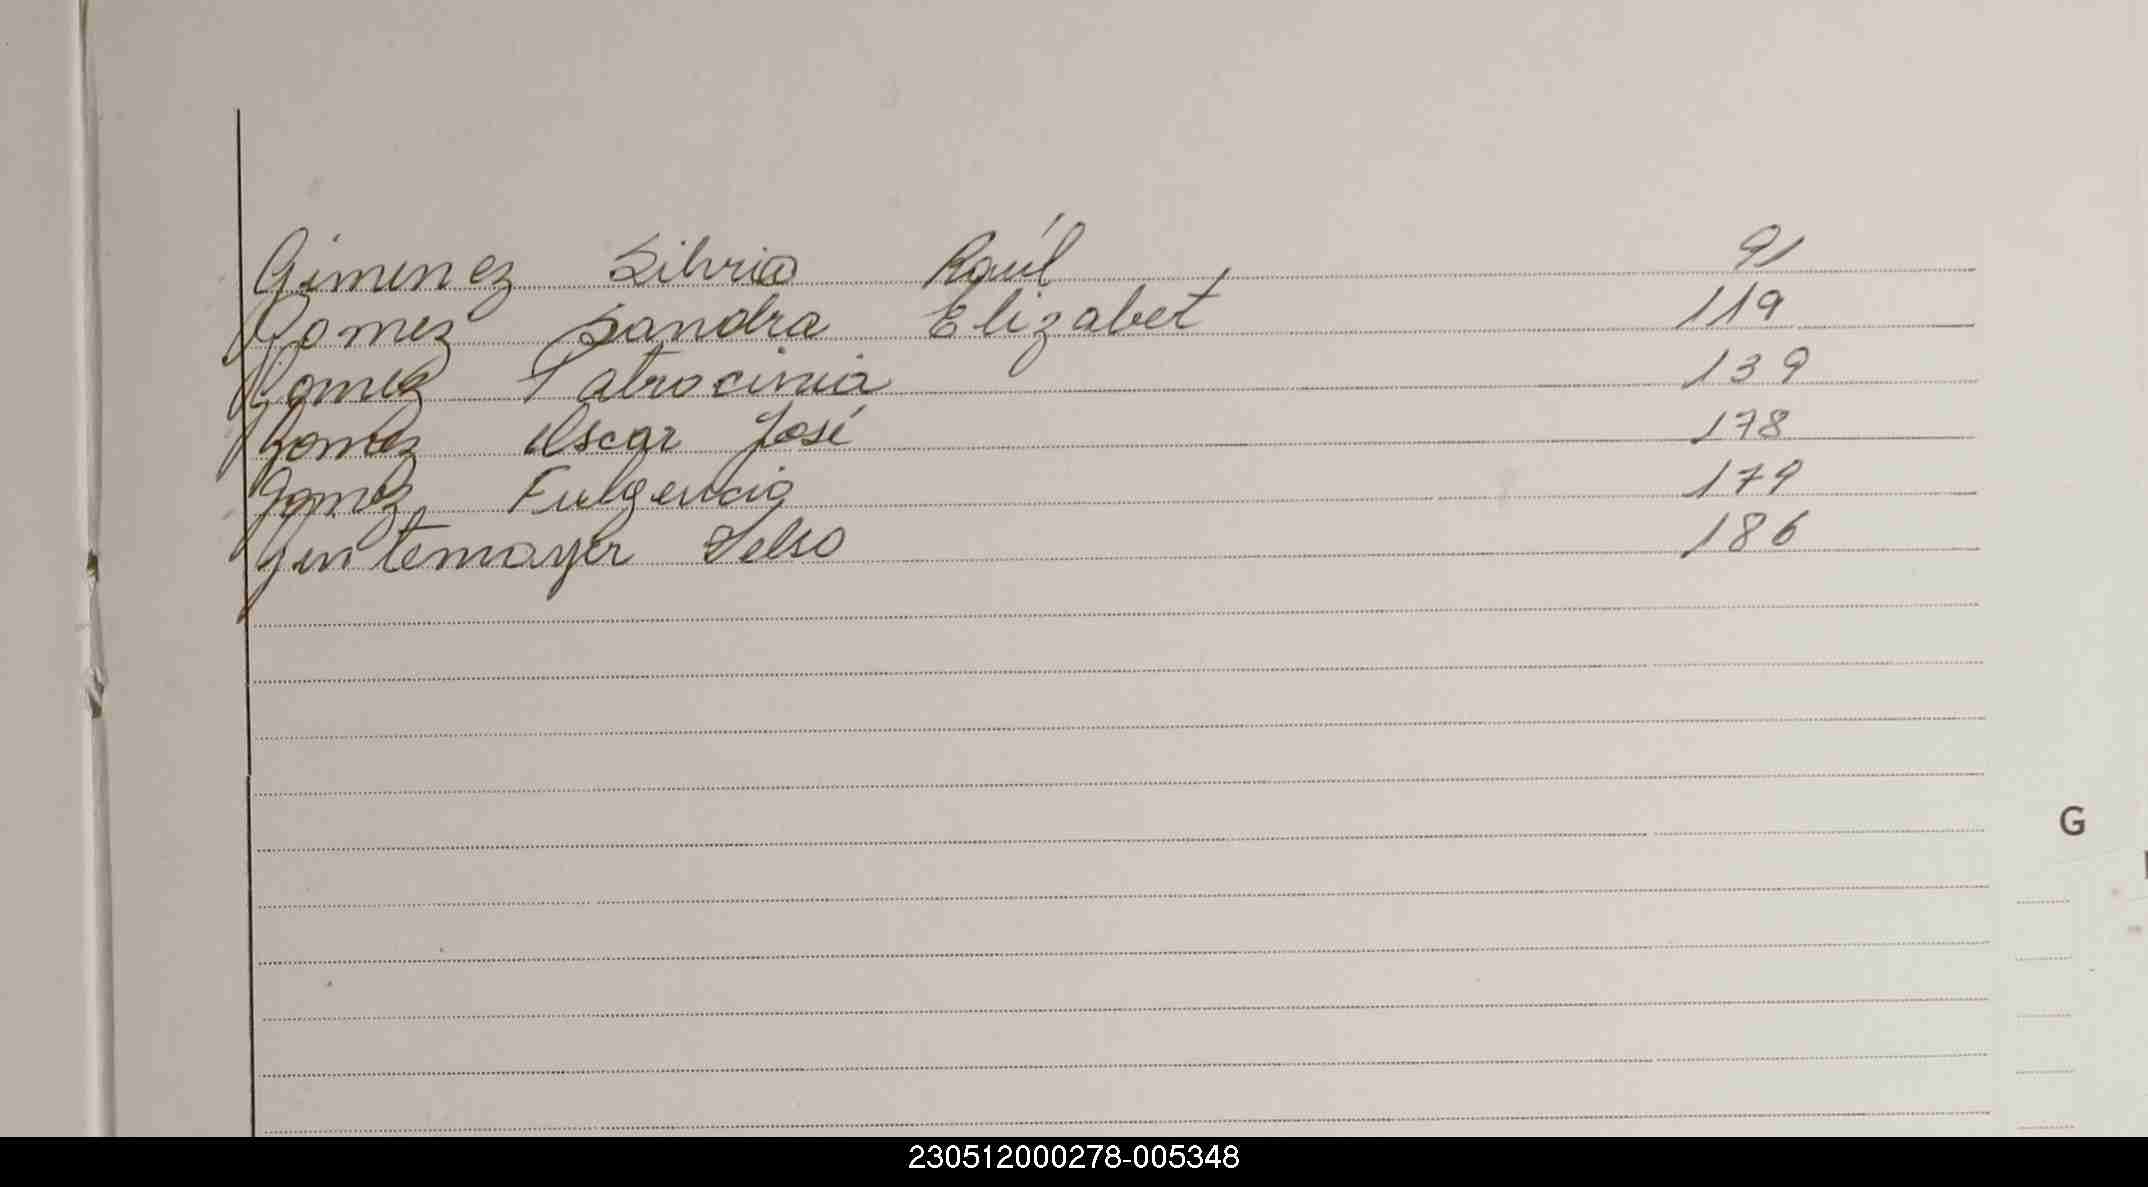 Gimenez Silvio Raúl 91
Gomez Sandra Elizabet 119
Gomez Patrocinia 139
Gomez Oscar José 178
Gomez Fulgencio 179
Gentemayer 186
G
230512000278-005348